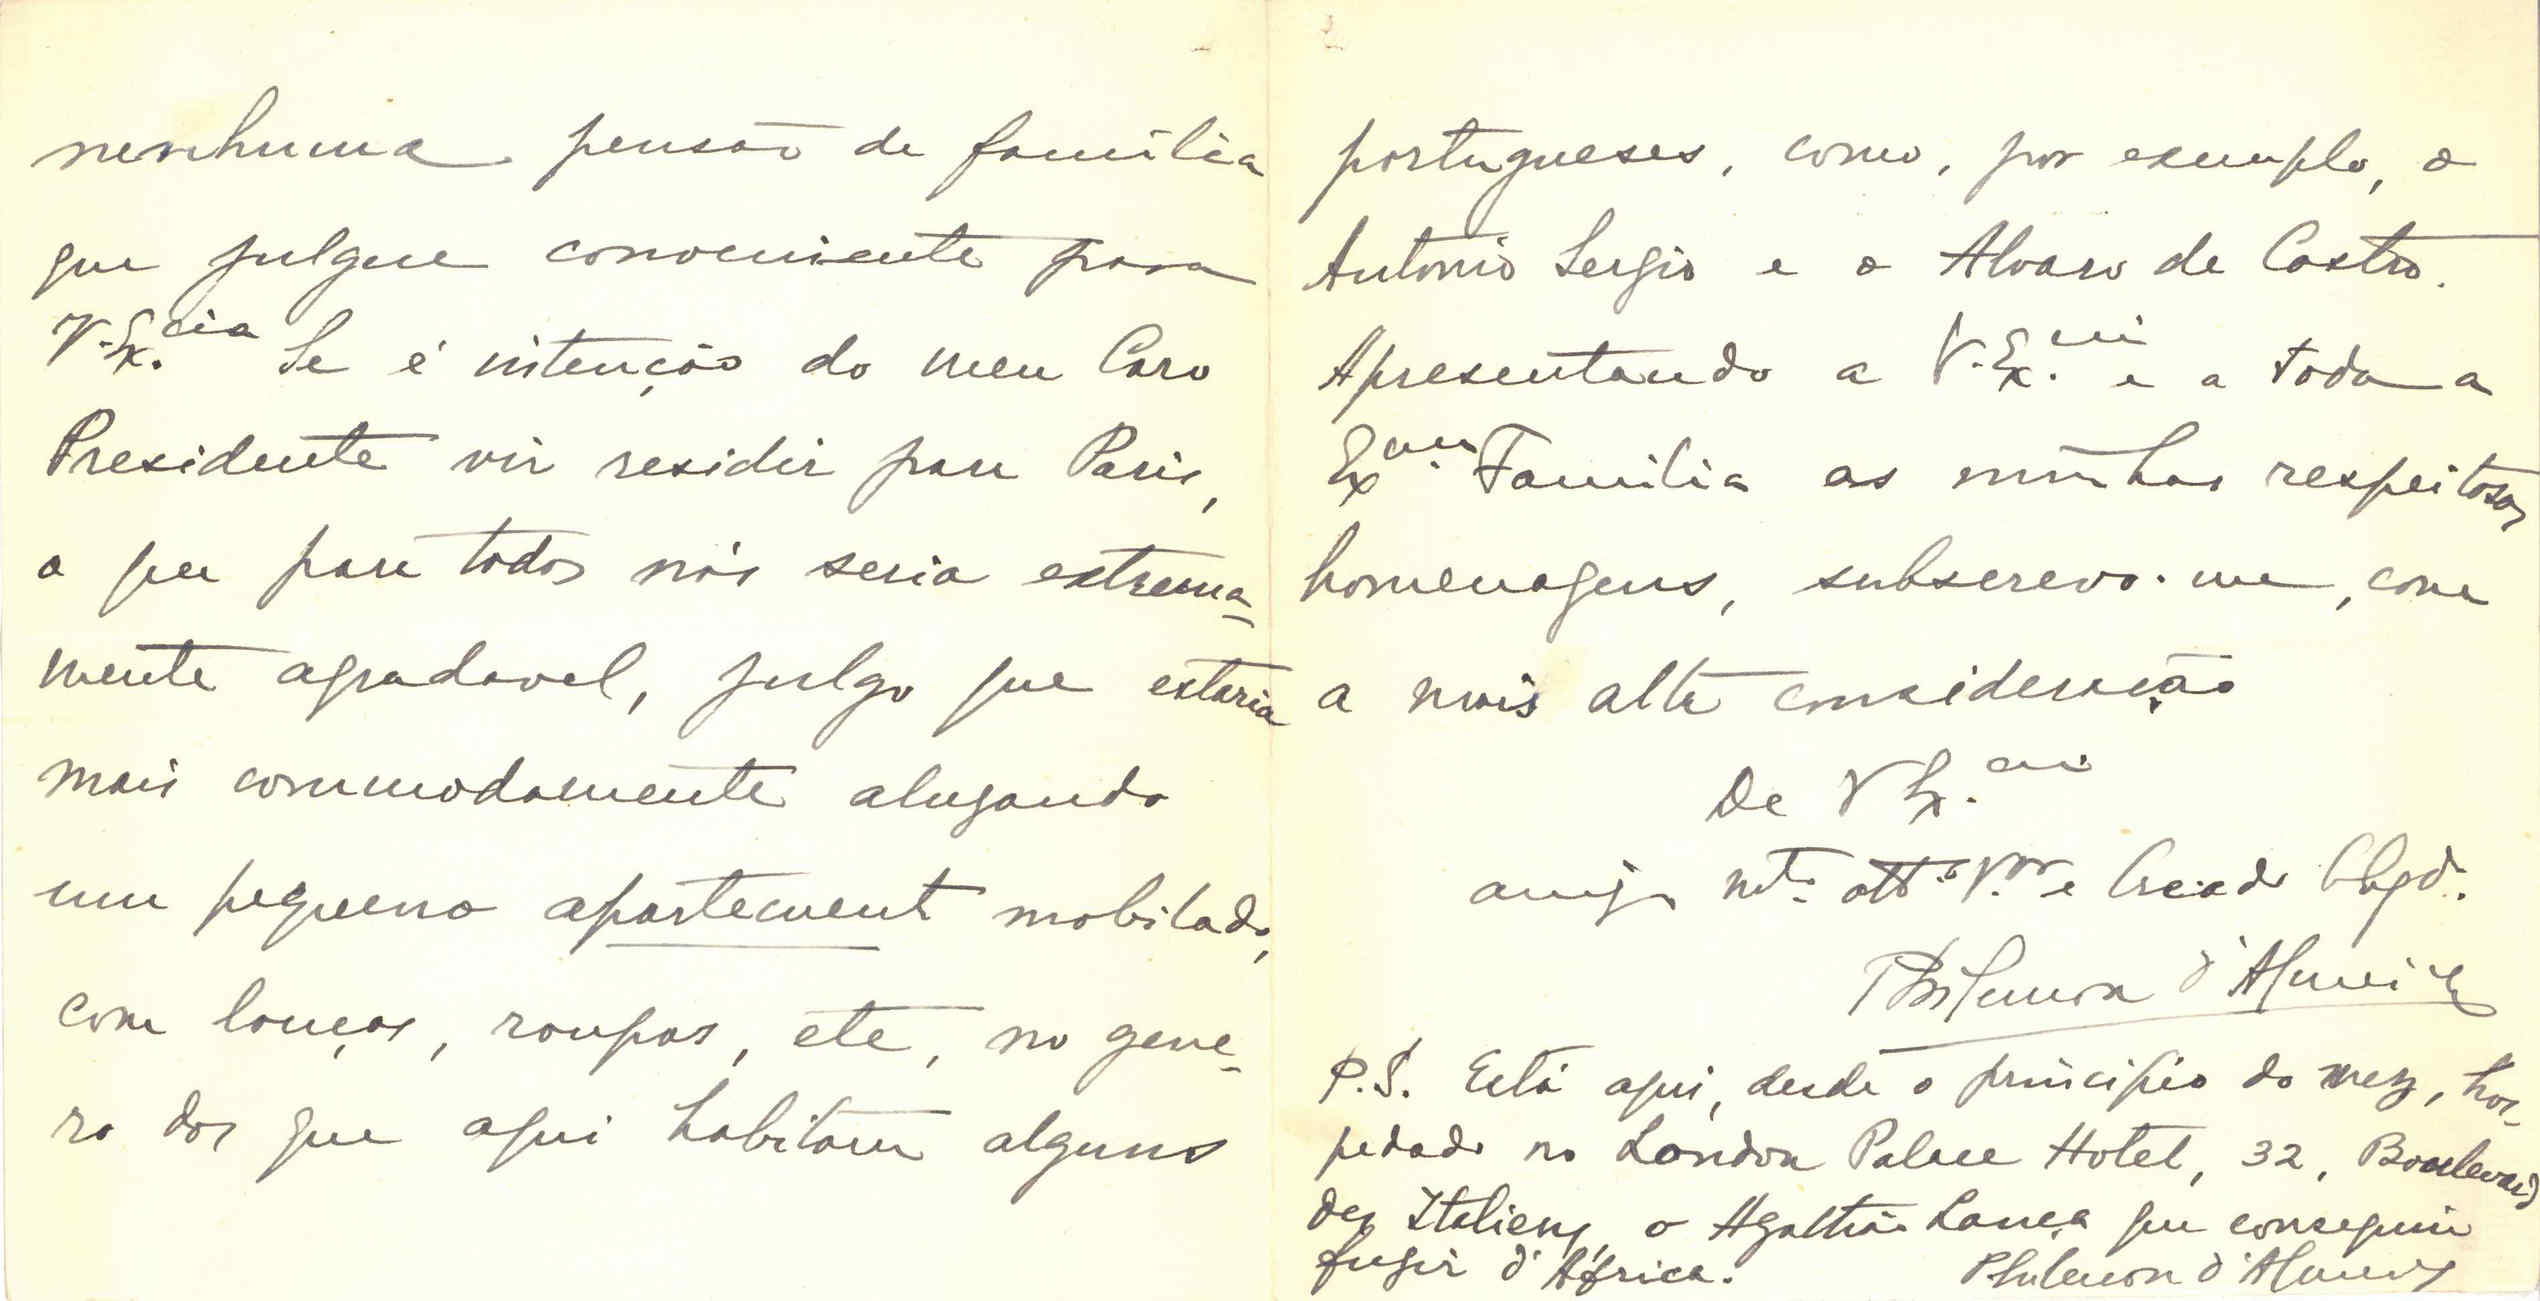 nenhuma pensão de familia
que julgue conveniente para
V. Ex.cia Se é intenção do meu Caro
Presidente vir residir para Paris,
o que para todos nós seria extrema-
mente agradavel, julgo que estaria
mais commodamente alugando
um pequeno apartement mobilado,
com louças, roupas, etc, no gene-
ro dos que aqui habitam alguns
portugueses, como, por exemplo, o
Antonio Sergio e o Alvaro de Castro.
Apresentando a V. Ex.cia e a toda a
Ex.ma Familia as minhas respeitosas
homenagens, subscrevo-me, com
a mais alta consideração
De V Ex.cia
amigo mt.o att.o V.or e Creado Obgdo.
Philemon d'Almeida
P.S. Está aqui, desde o principio do mez, hos-
pedado no London Palace Hotel, 32, Boulevard
des Italiens, o Agathão Lança que conseguiu
fugir d'Africa. Philemon d'Almeida